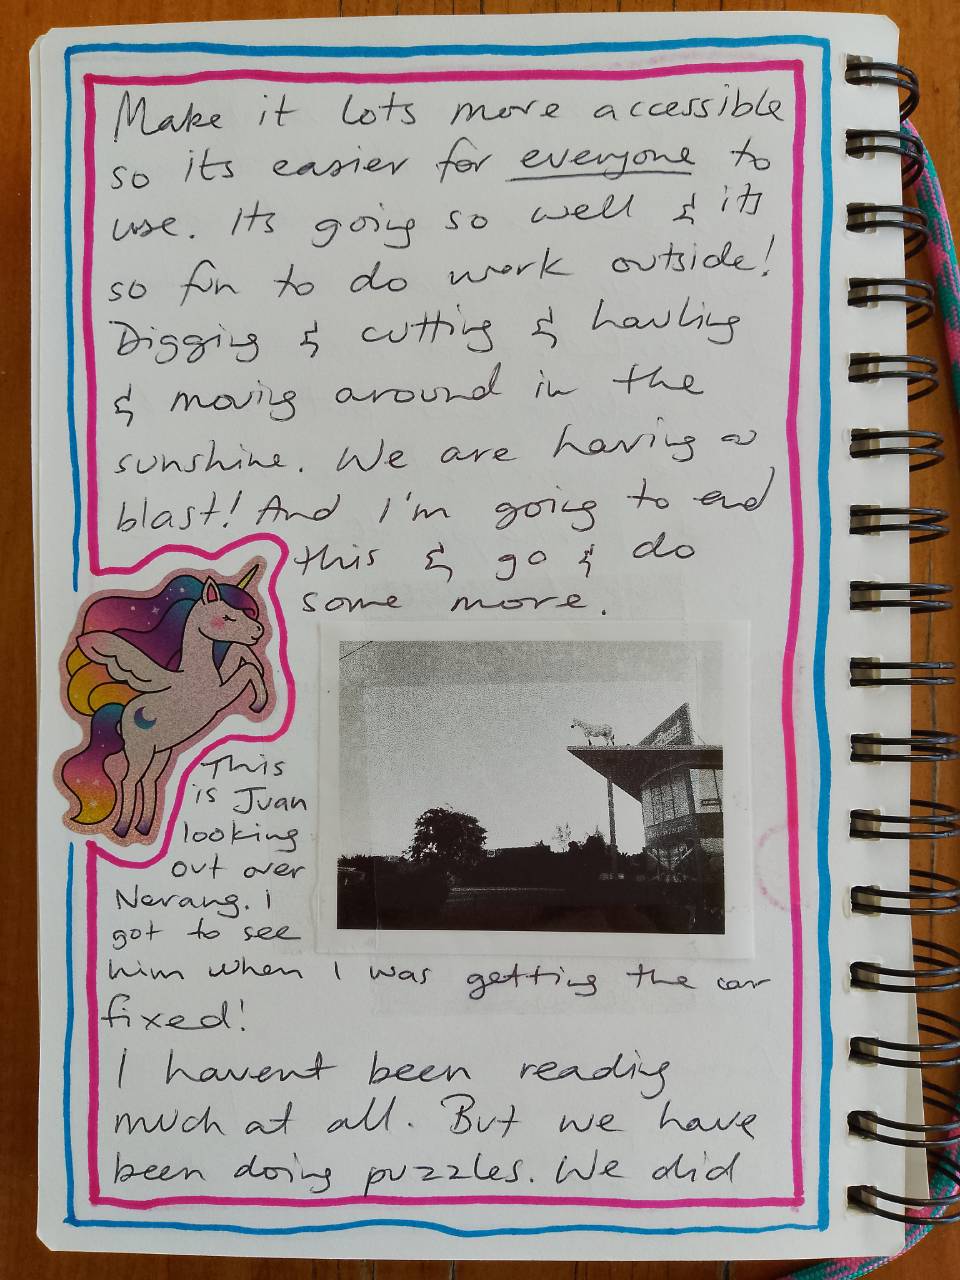 Make it lots more accessible
so its easier for everyone to
use. Its going so well & its
so fun to do work outside!
Digging & cutting & hauling
& moving around in the
sunshine. We are having a
blast! And I'm going to end
this & go & do
some more.
This
is Juan
looking
out over
Nerang. I
got to see
him when I was getting the car
fixed!
I havent been reading
much at all. But we have
been doing puzzles. We did